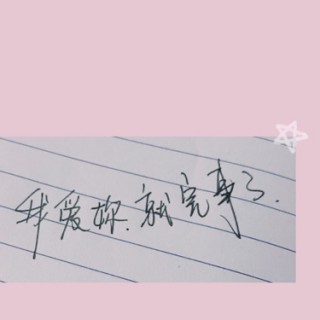 我爱妳.就完事了.